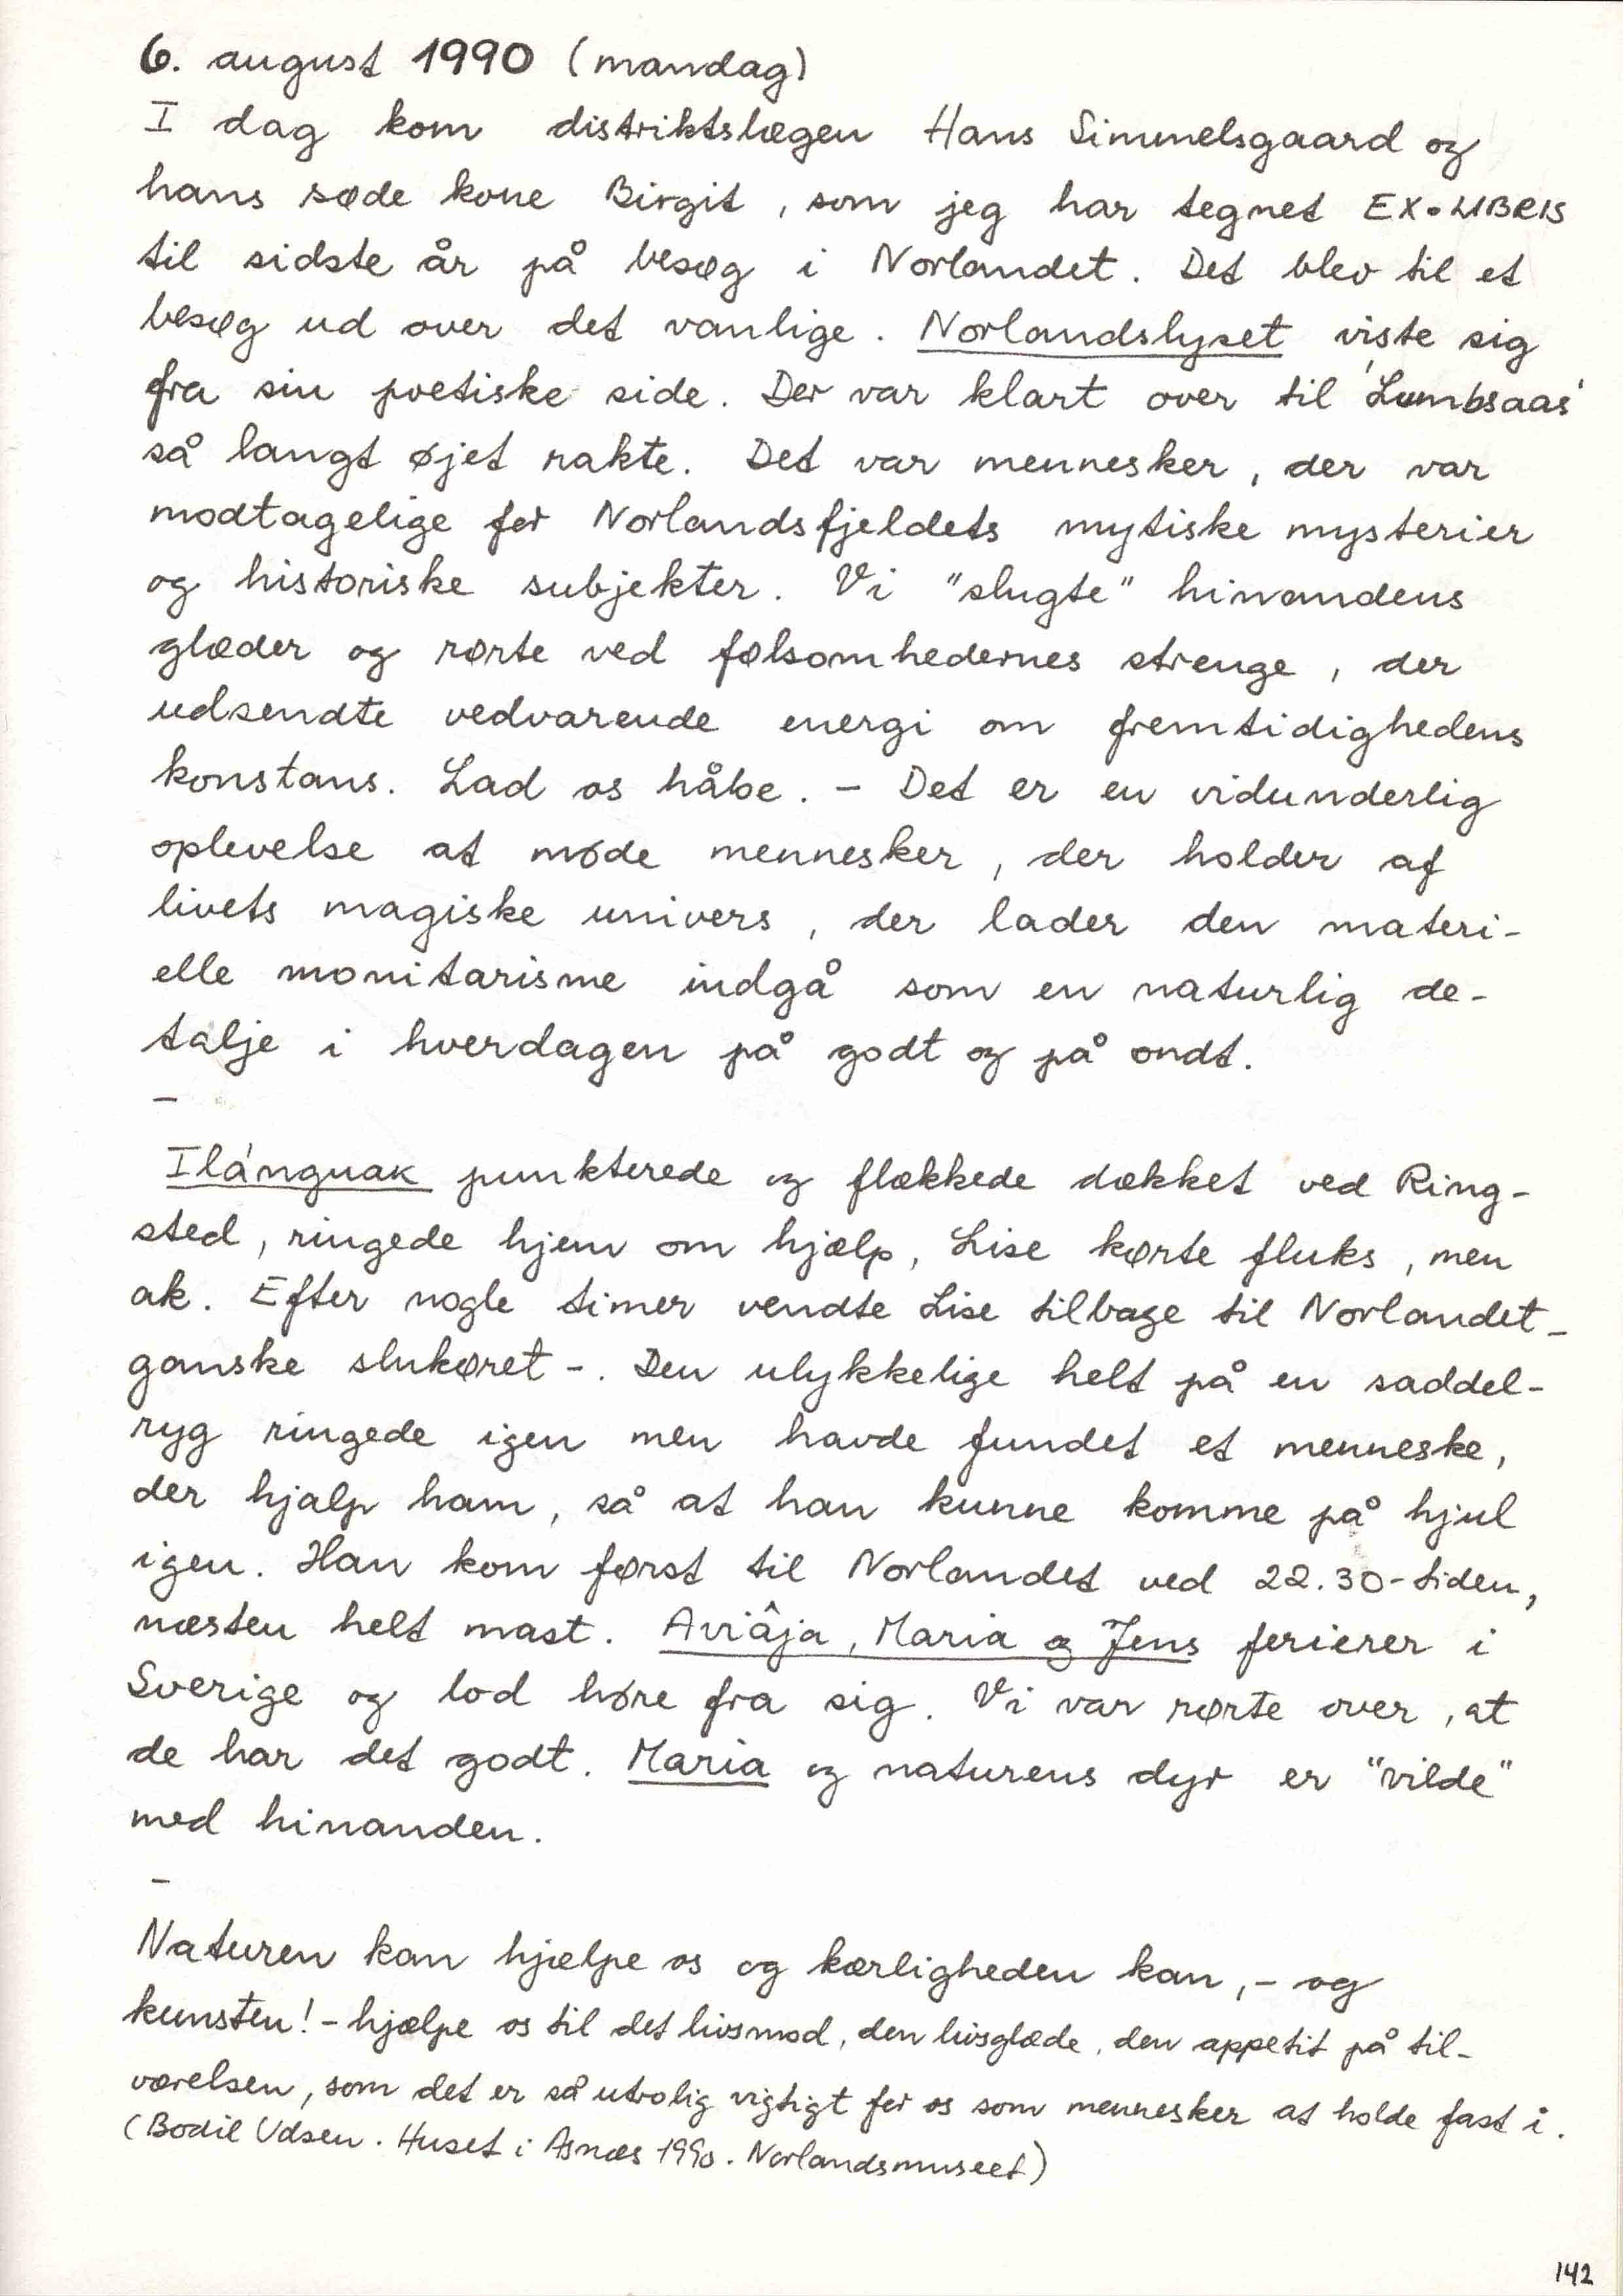 6. august 1990 (mandag)
I dag kom distriktslægen Hans Simmelsgaard og
hans søde kone Birgit, som jeg har tegnet EX·LIBRIS
til sidste år på besøg i Norlandet. Det blev til et
besøg ud over det vanlige. Norlandslyset viste sig
fra sin poetiske side. Der var klart over til 'Lumbsaas'
så langt øjet rakte. Det var mennesker, der var
modtagelige for Norlandsfjeldets mytiske mysterier
og historiske subjekter. Vi "slugte" hinandens
glæder og rørte ved følsomhedernes strenge, der
udsendte vedvarende energi om fremtidighedens
konstans. Lad os håbe. – Det er en vidunderlig
oplevelse at møde mennesker, der holder af
livets magiske univers, der lader den materi-
elle monitarisme indgå som en naturlig de-
talje i hverdagen på godt og på ondt.
–
Ilánguak punkterede og flækkede dækket ved Ring-
sted, ringede hjem om hjælp, Lise kørte fluks, men
ak. Efter nogle timer vendte Lise tilbage til Norlandet –
ganske slukøret –. Den ulykkelige helt på en saddel-
ryg ringede igen men havde fundet et menneske,
der hjalp ham, så at han kunne komme på hjul
igen. Han kom først til Norlandet ved 22.30-tiden,
næsten helt mast. Aviâja, Maria og Jens ferierer i
Sverige og lod høre fra sig. Vi var rørte over, at
de har det godt. Maria og naturens dyr er "vilde"
med hinanden.
–
Naturen kan hjælpe os og kærligheden kan, – og
kunsten! – hjælpe os til det livsmod, den livsglæde, den appetit på til-
værelsen, som det er så utrolig vigtigt for os som mennesker at holde fast i.
(Bodil Udsen. Huset i Asnæs 1990. Norlandsmuseet)
142